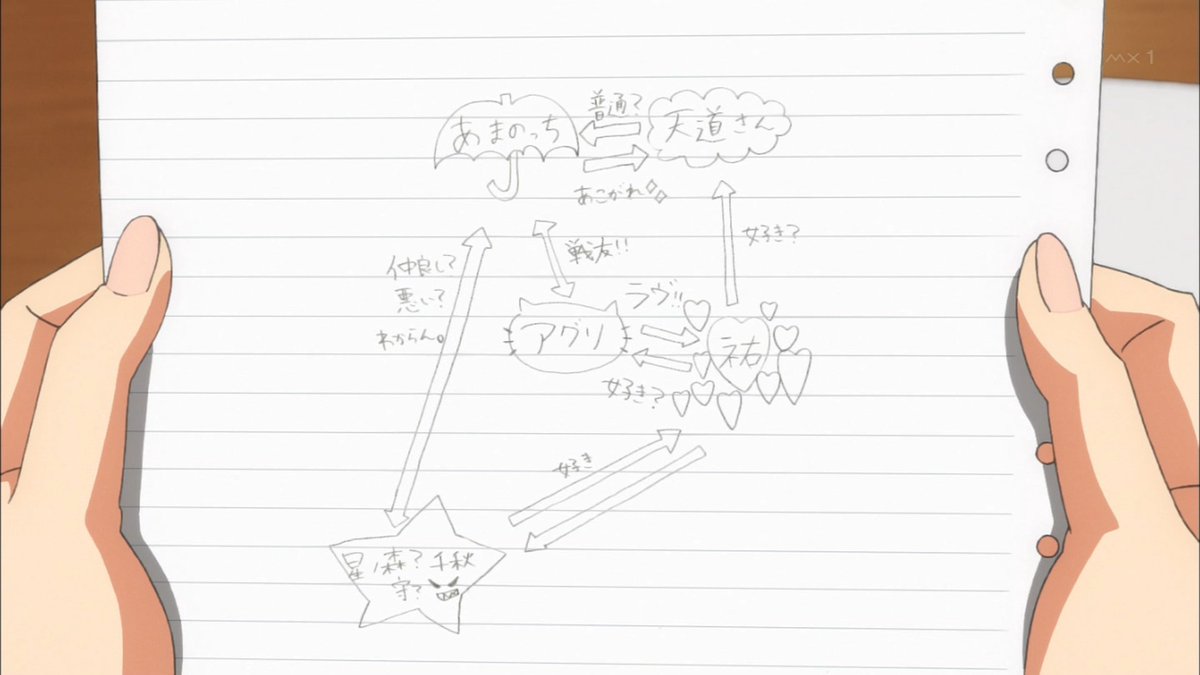 MX1
普通?
あまのっち
天道さん
あこがれ
好き?
仲良し?
悪い?
わからん。
戦友!!
ラヴ!!
アグリ
祐
好き?
好き
星ノ森?千秋
守?